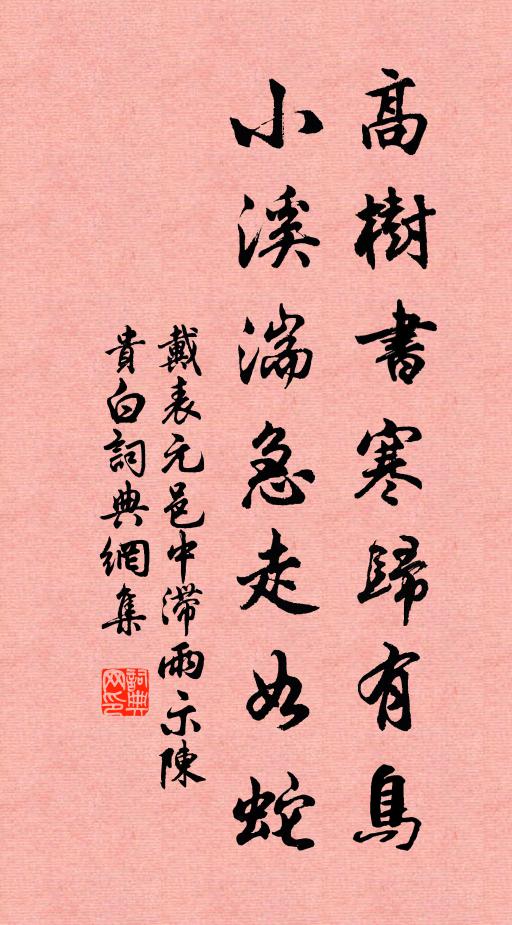 高樹書寒歸有鳥
小溪湍急走如蛇
戴表元邑中滯雨示陳
貴白詞典網集
詞典网印